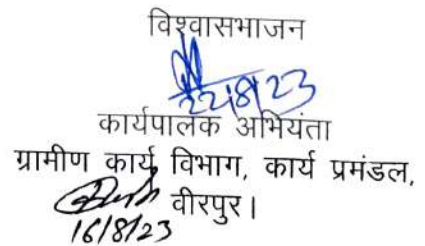 विश्वासभाजन
22/8/23
कार्यपालक अभियंता
ग्रामीण कार्य विभाग, कार्य प्रमंडल,
वीरपुर।
16/8/23